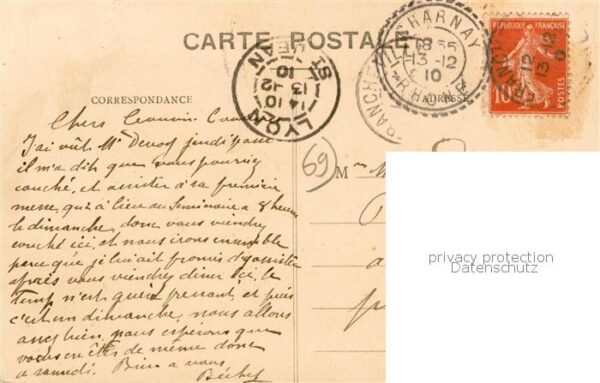 CARTE POSTALE
CORRESPONDANCE
ADRESSE
CHARNAY
18 35
13-12
10
RHONE
LYON
ST JEAN
14 10
13-12
10
REPUBLIQUE FRANÇAISE
10
POSTES
12
13-12
69
Chers Cousin Cou
J'ai vût Mr Devos jeudi passé
il m'a dit que vous pouriez
couché, et assister à sa première
messe qui à lieu au Seminaire a 8 heures
le dimanche, donc vous viendrez
couché ici, et nous irons ensemble
parce que je lui ait promis d'y assister
après vous viendrez diner ici, le
temp n'est guère prenant, et puis
c'est un dimanche, nous allons
ancy bien, nous espérons que
vous en êtes de même donc
a samedi. Bien a vous
M
privacy protection
Datenschutz